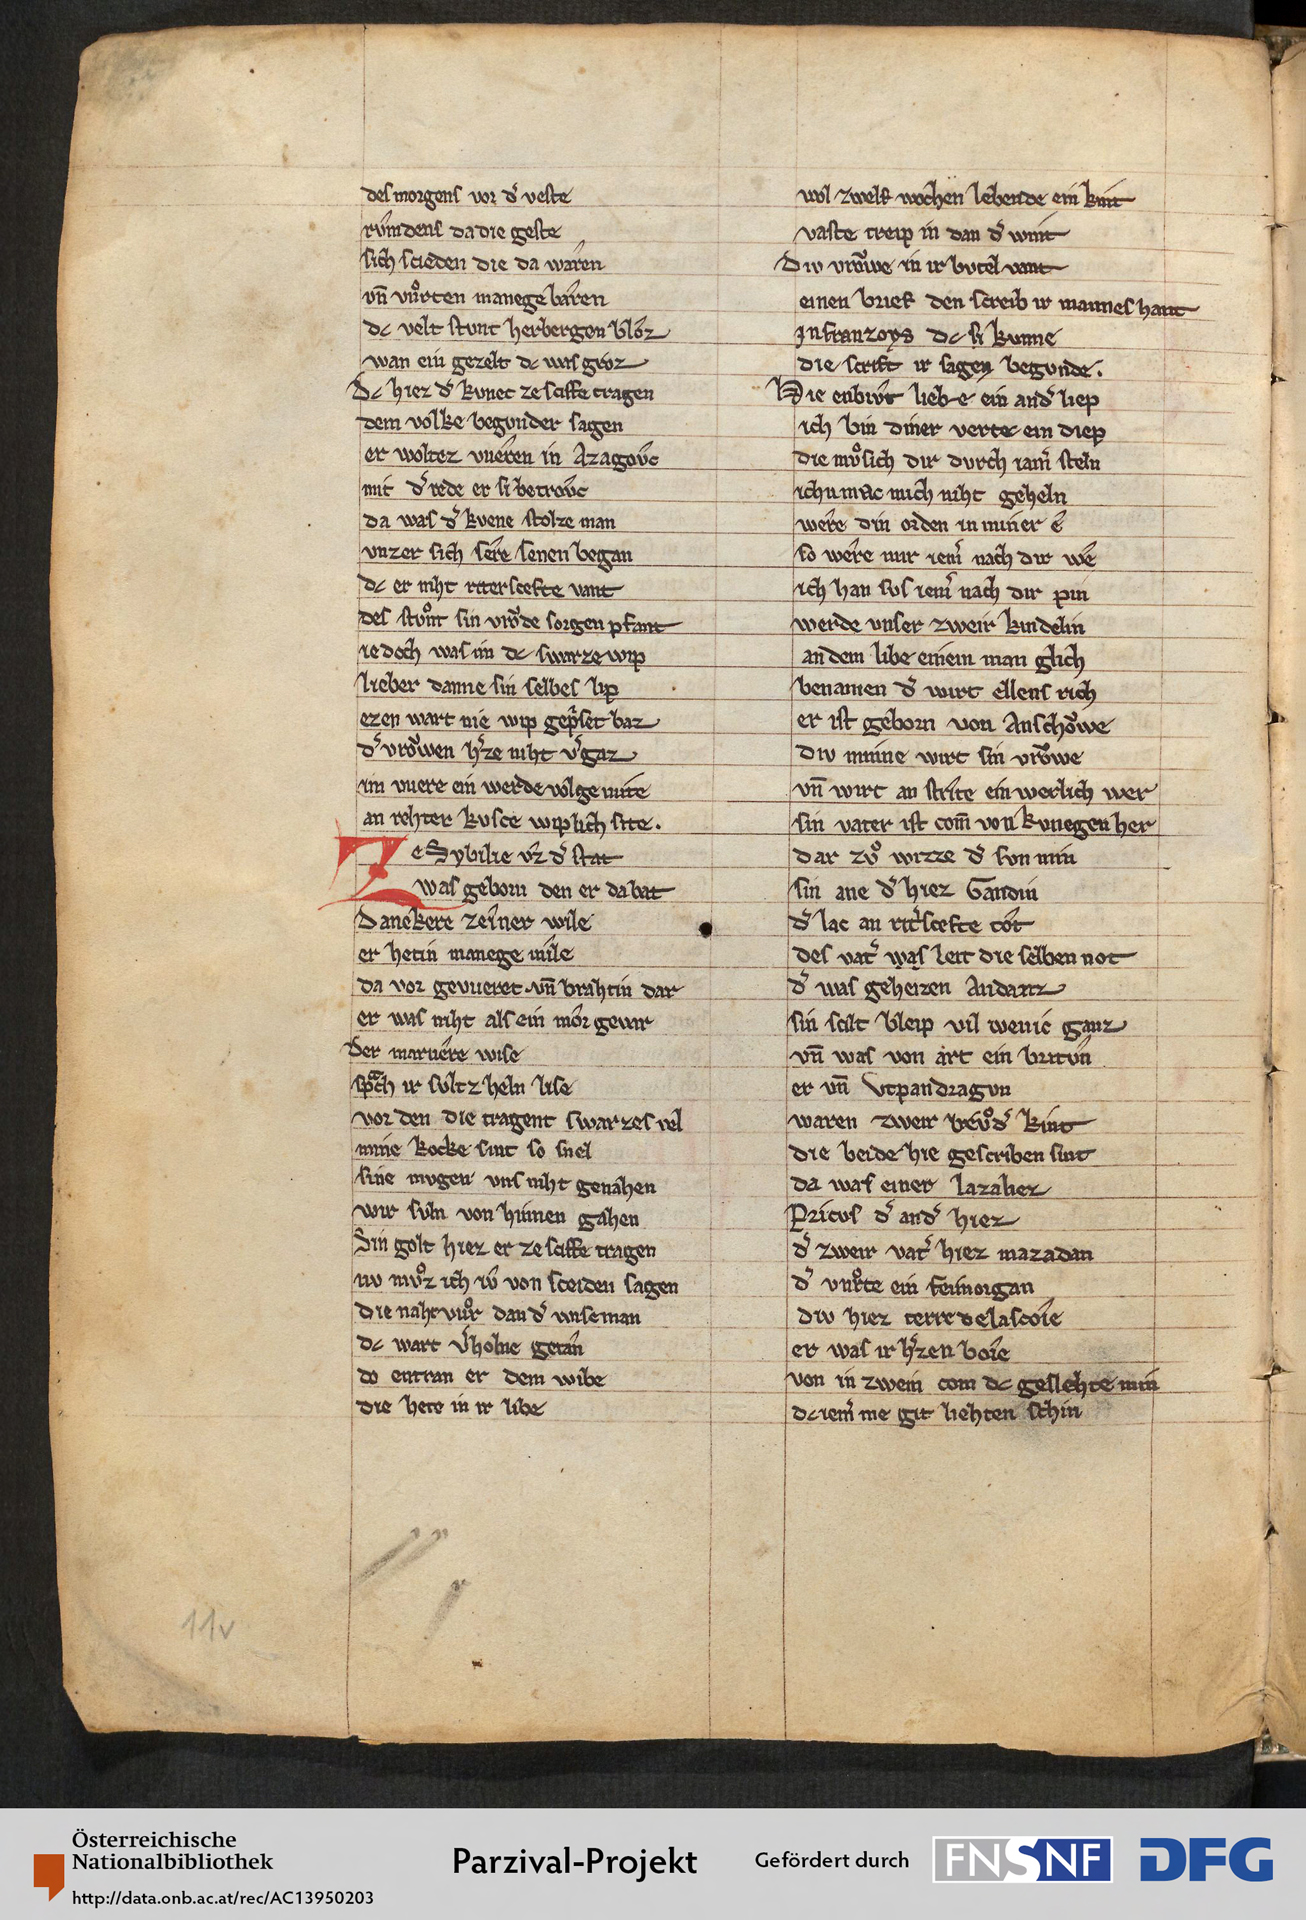 des morgens vor d͛ veste
rv̂mdens da die geste
sich scieden die da waren
vn̄ vuͦrten manege baren
dc velt stvnt herbergen bloz
wan ein gezelt dc was groz
Dc hiez d͛ kvnec ze sciffe tragen
dem volke begvnder sagen
er woltez vueren in Azagovc
mit d͛ rede er si betrovc
da was d͛ kvene stolze man
vnzer sich sere senen began
dc er niht riterscefte vant
des stvͦnt sin vrovde sorgen pfant
iedoch was im dc swarze wip
lieber danne sin selbes lip
ezen wart nie wip gepͥset baz
d͛ vrowen h͛ze niht v͛gaz
im vuere ein werde volge mite
an rehter kvsce wiplich site.
Ze Sybilie vz d͛ stat
was geborn den er da bat
Danekere zeiner wile
er hetin manege mile
da vor gevueret vn̄ brahtin dar
er was niht als ein mor gevar
Der marnere wise
sprach ir svltz heln lise
vor den die tragent swarzes vel
mine kocke sint so snel
sine mvgen vns niht genahen
wir svln von hinnen gahen
Sin golt hiez er ze sciffe tragen
nv mvͦz ich iv von sceiden sagen
die naht vuͦr dan d͛ wise man
dc wart v͛holne getan
do entran er dem wibe
die hete in ir libe
wol zwelf wochen lebende ein kint
vaste treip in dan d͛ wint
Div vrowe in ir bvtel vant
einen brief den screib ir mannes hant
In franzoys dc si kvnne
die scrift ir sagen begvnde.
Hie enbivt lieb e ein and͛ liep
ich bin diner verte ein diep
die mvͦsich dir dvrch iam͛ steln
ichn mac mich niht geheln
were din orden in miner e
so were mir iem͛ nach dir we
ich han svs iem͛ nach dir pin
werde vnser zweir kindelin
an dem libe einem man glich
benamen d͛ wirt ellens rich
er ist geborn von Anschowe
div minne wirt sin vrowe
vn̄ wirt an strite ein werlich wer
sin vater ist com̄ von kvnegen her
dar zvͦ wizze d͛ svn min
sin ane d͛ hiez Gandin
d͛ lac an rit͛scefte tot
des vat͛ was leit die selben not
d͛ was geheizen Andanz
sin scilt bleip vil wenic ganz
vn̄ was von art ein britvn
er vn̄ Vtpandragvn
waren zweir brvͦd͛ kint
die beide hie gescriben sint
da was einer lazaliez
Pricvs d͛ and͛ hiez
d͛ zweir vat͛ hiez mazadan
d͛ vuͦrte ein feimorgan
div hiez terre delascoie
er was ir h͛zen boie
von in zwein com dc geslehte min
dc iem͛ me git liehten schin
11v
Österreichische
Nationalbibliothek
http://data.onb.ac.at/rec/AC13950203
Parzival-Projekt
Gefördert durch
FNSNF
DFG